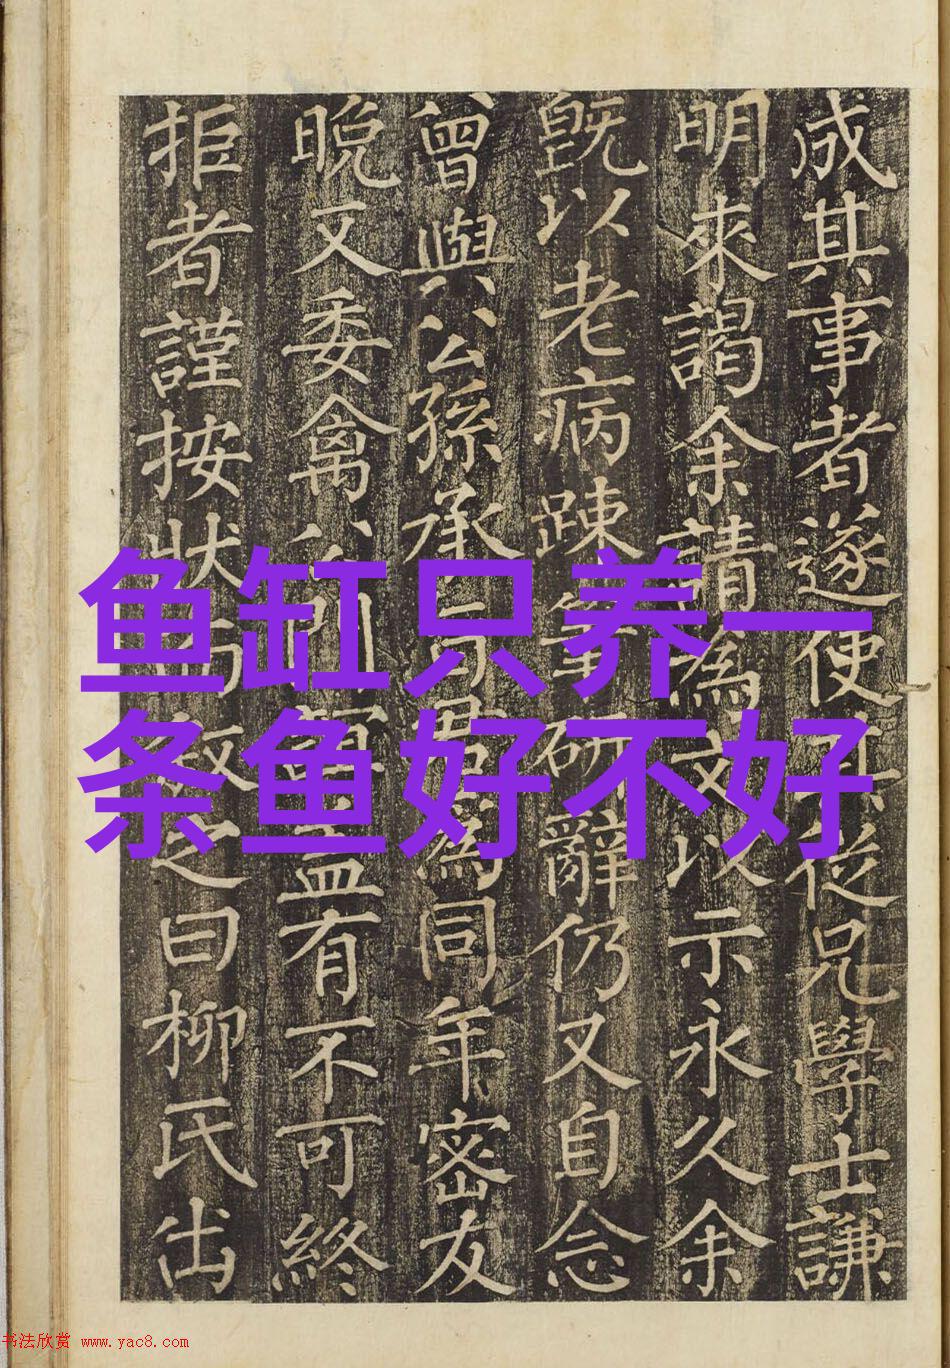 成其事者遂使其從兄學士謙
明來謁余請為文以示永久余
既以老病踈筆研辭仍又自念
曾與公孫承旨君為同年密友
晩又委禽
有不可終
拒者謹按狀
之曰柳氏出
鱼缸只养一
条鱼好不好
书法欣赏 www.yac8.com